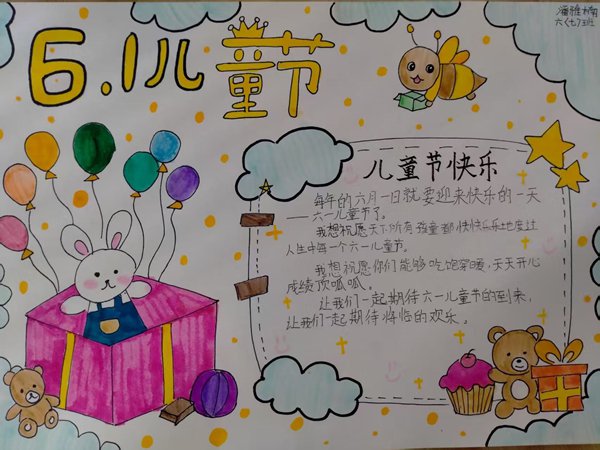 潘雅楠
六(七)班
6.1儿童节
儿童节快乐
每年的六月一日就要迎来快乐的一天
——六一儿童节了。
我想祝愿天下所有孩童都快快乐乐地度过
人生中每一个六一儿童节。
我想祝愿你们能够吃饱穿暖,天天开心
成绩顶呱呱。
让我们一起期待六一儿童节的到来,
让我们一起期待将临的欢乐。